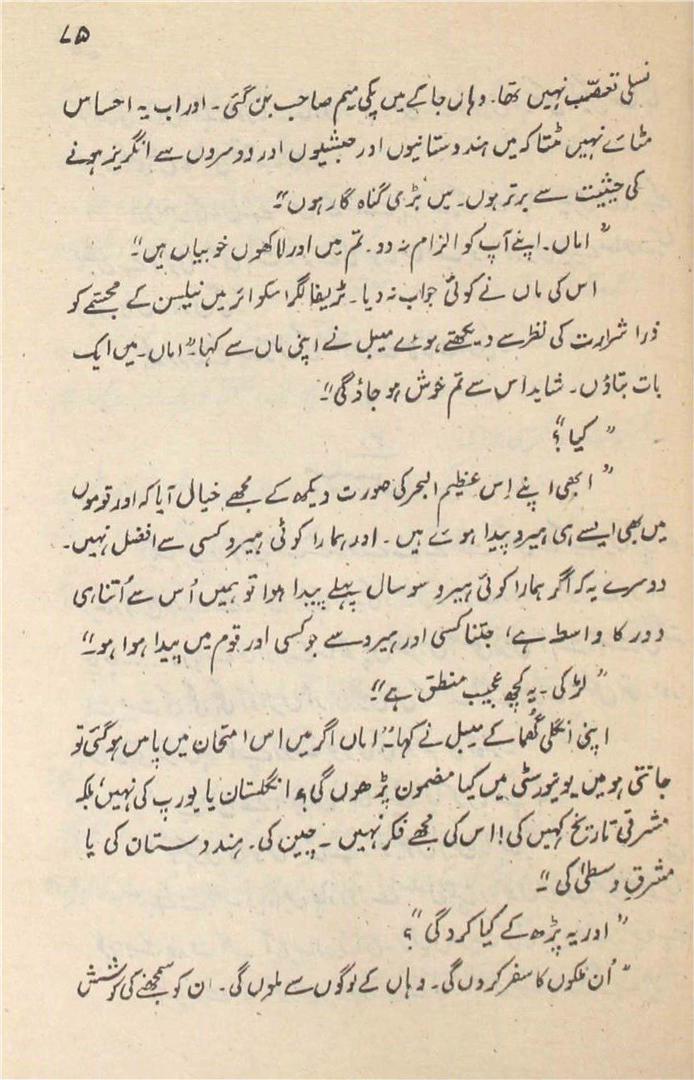 ۷۵
نسلی تعصّب نہیں تھا۔ وہاں جا کے میں پکی میم صاحب بن گئی۔ اور اب یہ احساس
مٹائے نہیں مٹتا کہ میں ہندوستانیوں اور حبشیوں اور دوسروں سے انگریز ہونے
کی حیثیت سے برتر ہوں۔ میں بڑی گناہ گار ہوں"۔
"اماں۔ اپنے آپ کو الزام نہ دو۔ تم میں اور لاکھوں خوبیاں ہیں"۔
اس کی ماں نے کوئی جواب نہ دیا۔ ٹریفالگر اسکوائر میں نیلسن کے مجسمّے کو
ذرا شرارت کی نظر سے دیکھتے ہوئے میبل نے اپنی ماں سے کہا۔ "اماں۔ میں ایک
بات بتاؤں۔ شاید اس سے تم خوش ہو جاؤ گی"۔
"کیا"؟
"ابھی اپنے اِس عظیم البحر کی صورت دیکھ کے مجھے خیال آیا کہ اور قوموں
میں بھی ایسے ہی ہیرو پیدا ہوئے ہیں۔ اور ہمارا کوئی ہیرو کسی سے افضل نہیں۔
دوسرے یہ کہ اگر ہمارا کوئی ہیرو سو سال پہلے پیدا ہوا تو ہمیں اُس سے اُتنا ہی
دور کا واسطہ ہے، جتنا کسی اور ہیرو سے جو کسی اور قوم میں پیدا ہوا ہو۔"
"لڑکی۔ یہ کچھ عجیب منطق ہے"۔
اپنی انگلی گھُما کے میبل نے کہا۔ "اماں اگر میں اس امتحان میں پاس ہو گئی تو
جانتی ہو میں یونیورسٹی میں کیا مضمون پڑھوں گی؟ انگلستان یا یورپ کی نہیں، بلکہ
مشرقی تاریخ کہیں کی! اس کی مجھے فکر نہیں۔ چین کی۔ ہندوستان کی یا
مشرقِ وسطیٰ کی"۔
"اور یہ پڑھ کے کیا کرو گی"؟
"اُن ملکوں کا سفر کروں گی۔ وہاں کے لوگوں سے ملوں گی۔ ان کو سمجھنے کی کوشش